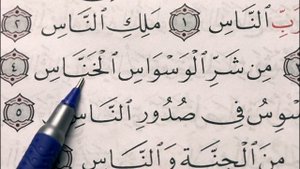 رَبِّ ٱلنَّاسِ ١ مَلِكِ ٱلنَّاسِ ٢
٣ مِن شَرِّ ٱلْوَسْوَاسِ ٱلْخَنَّاسِ ٤
سْوِسُ فِى صُدُورِ ٱلنَّاسِ ٥
مِنَ ٱلْجِنَّةِ وَٱلنَّاسِ